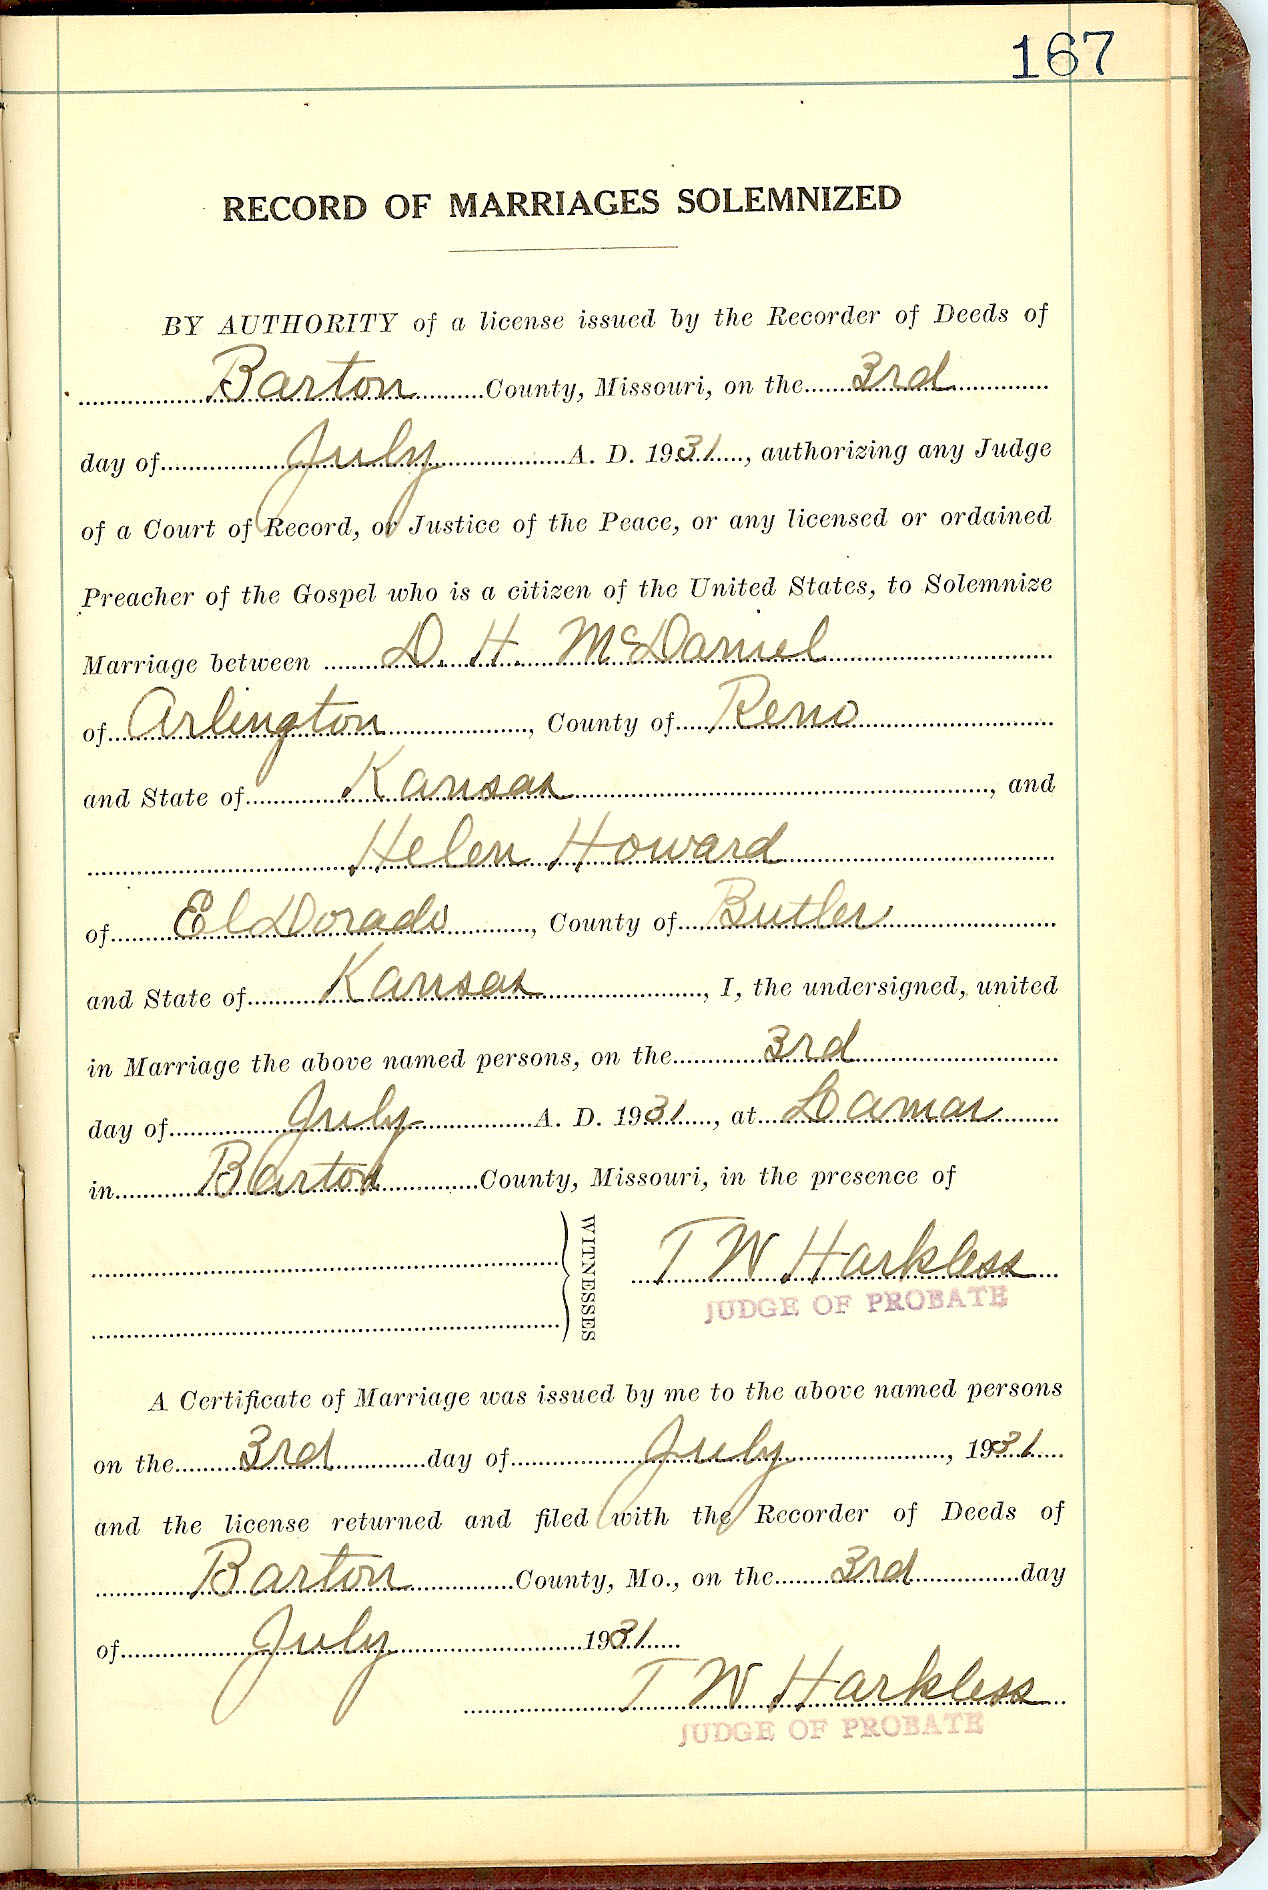 167
RECORD OF MARRIAGES SOLEMNIZED
BY AUTHORITY of a license issued by the Recorder of Deeds of
Barton County, Missouri, on the 3rd
day of July A. D. 1931, authorizing any Judge
of a Court of Record, or Justice of the Peace, or any licensed or ordained
Preacher of the Gospel who is a citizen of the United States, to Solemnize
Marriage between D. H. McDaniel
of Arlington, County of Reno
and State of Kansas, and
Helen Howard
of El Dorado, County of Butler
and State of Kansas, I, the undersigned, united
in Marriage the above named persons, on the 3rd
day of July A. D. 1931, at Lamar
in Barton County, Missouri, in the presence of
WITNESSES
T W Harkless
JUDGE OF PROBATE
A Certificate of Marriage was issued by me to the above named persons
on the 3rd day of July, 1931
and the license returned and filed with the Recorder of Deeds of
Barton County, Mo., on the 3rd day
of July 1931
T W Harkless
JUDGE OF PROBATE